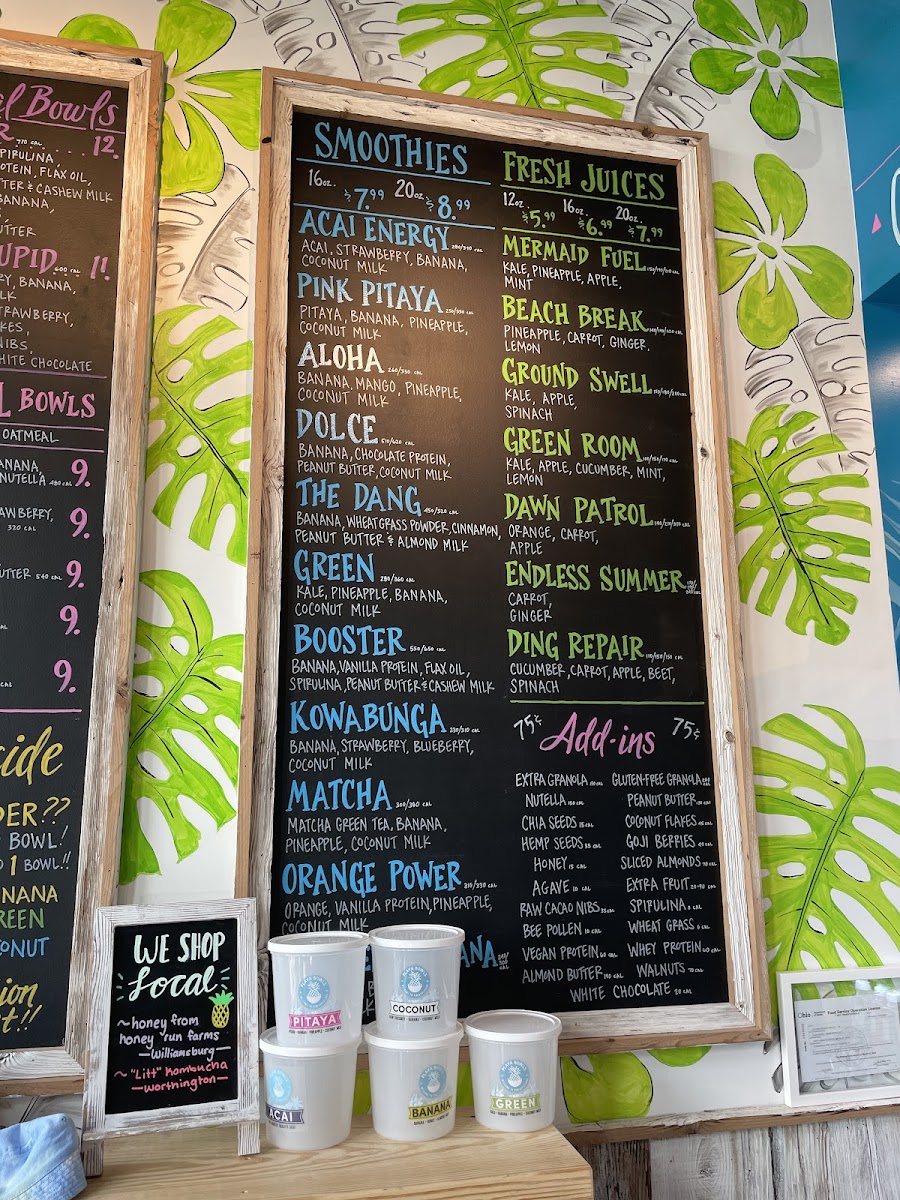 Bowls
12.
SPIRULINA,
FLAX OIL,
& CASHEW MILK
BANANA,
BUTTER
600 CAL
BANANA,
STRAWBERRY,
NIBS,
WHITE CHOCOLATE
BOWLS
OATMEAL
NUTELLA
9.
320 CAL
9.
540 CAL
9.
9.
9.
BOWL!
1 BOWL!!
SMOOTHIES
16 oz. $7.99 20 oz $8.99
ACAI ENERGY
ACAI, STRAWBERRY, BANANA,
COCONUT MILK
PINK PITAYA
PITAYA, BANANA, PINEAPPLE,
COCONUT MILK
ALOHA
BANANA, MANGO, PINEAPPLE,
COCONUT MILK
DOLCE
BANANA, CHOCOLATE PROTEIN,
PEANUT BUTTER, COCONUT MILK
THE DANG 450/520 CAL
BANANA, WHEATGRASS POWDER, CINNAMON,
PEANUT BUTTER & ALMOND MILK
GREEN
KALE, PINEAPPLE, BANANA,
COCONUT MILK
BOOSTER 550/650 CAL
BANANA, VANILLA PROTEIN, FLAX OIL,
SPIRULINA, PEANUT BUTTER & CASHEW MILK
KOWABUNGA
BANANA, STRAWBERRY, BLUEBERRY,
COCONUT MILK
MATCHA
MATCHA GREEN TEA, BANANA,
PINEAPPLE, COCONUT MILK
ORANGE POWER
ORANGE, VANILLA PROTEIN, PINEAPPLE,
COCONUT MILK
FRESH JUICES
12 oz. $5.99 16 oz. $6.99 20 oz. $7.99
MERMAID FUEL
KALE, PINEAPPLE, APPLE,
MINT
BEACH BREAK
PINEAPPLE, CARROT, GINGER,
LEMON
GROUND SWELL
KALE, APPLE,
SPINACH
GREEN ROOM
KALE, APPLE, CUCUMBER, MINT,
LEMON
DAWN PATROL
ORANGE, CARROT,
APPLE
ENDLESS SUMMER
CARROT,
GINGER
DING REPAIR
CUCUMBER, CARROT, APPLE, BEET,
SPINACH
75¢ Add-ins 75¢
EXTRA GRANOLA
NUTELLA
CHIA SEEDS
HEMP SEEDS
HONEY
AGAVE
RAW CACAO NIBS
BEE POLLEN
VEGAN PROTEIN
ALMOND BUTTER
GLUTEN-FREE GRANOLA
PEANUT BUTTER
COCONUT FLAKES
GOJI BERRIES
SLICED ALMONDS
EXTRA FRUIT
SPIRULINA
WHEAT GRASS
WHEY PROTEIN
WALNUTS
WHITE CHOCOLATE
WE SHOP
Local
~ honey from
honey run farms
— Williamsburg —
~ "Litt" Kombucha
— Worthington —
PITAYA
COCONUT
ACAI
BANANA
GREEN
Ohio
Food Service Operation License